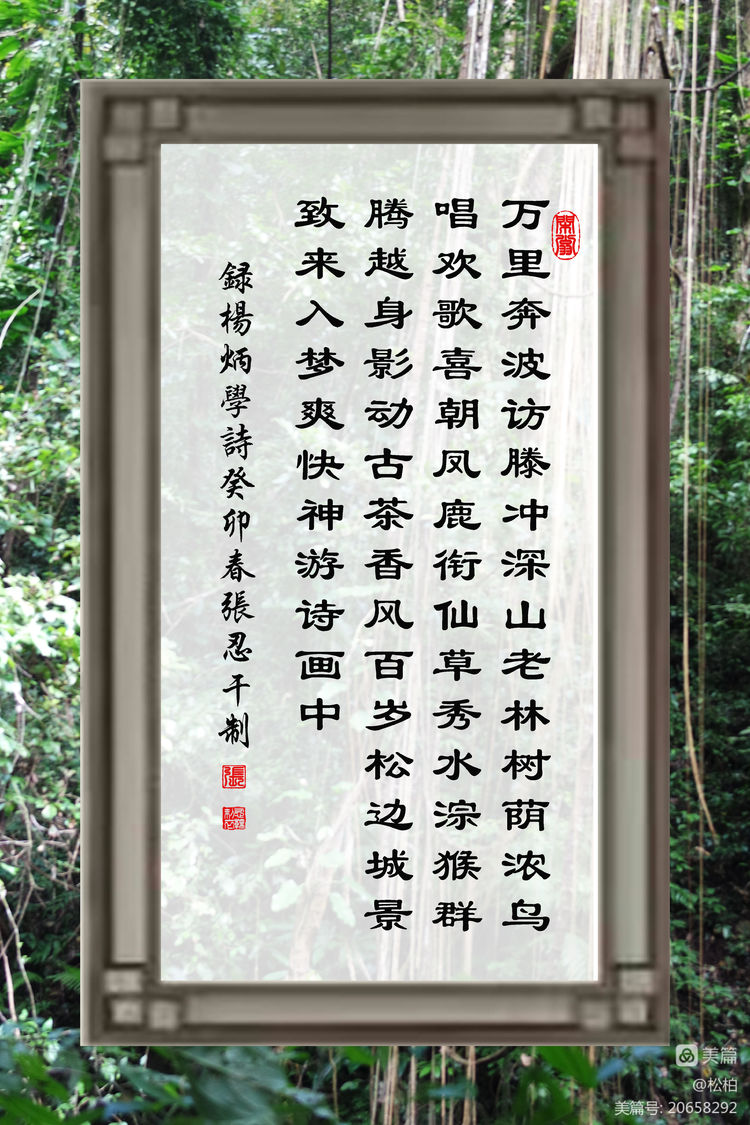 万里奔波访滕冲深山老林树荫浓鸟
唱欢歌喜朝凤鹿衔仙草秀水淙猴群
腾越身影动古茶香风百岁松边城景
致来入梦爽快神游诗画中
録楊炳學詩癸卯春張忍干制
張
美篇
@松柏
美篇号: 20658292